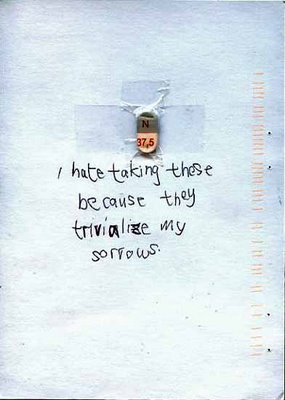 N
37,5
I hate taking these
because they
trivialize my
sorrows.